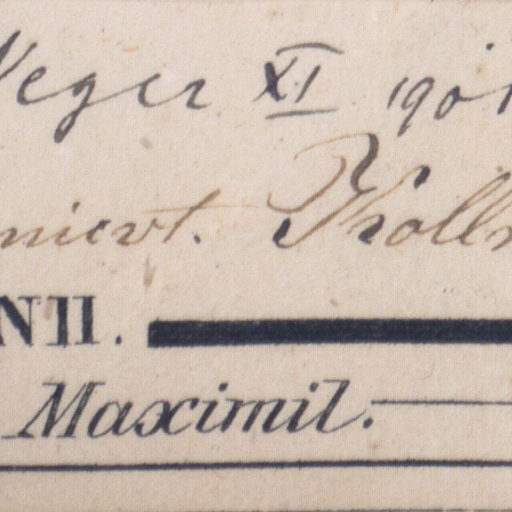 Neger XI 1901
niert. Kolln
NII.
Maximil.